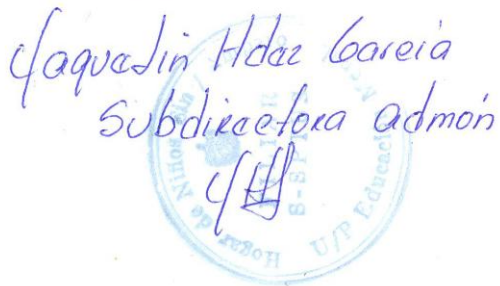 Yaquelin Hdez Garcia
Subdirectora admón
Hogar de Niños
U/P Educación